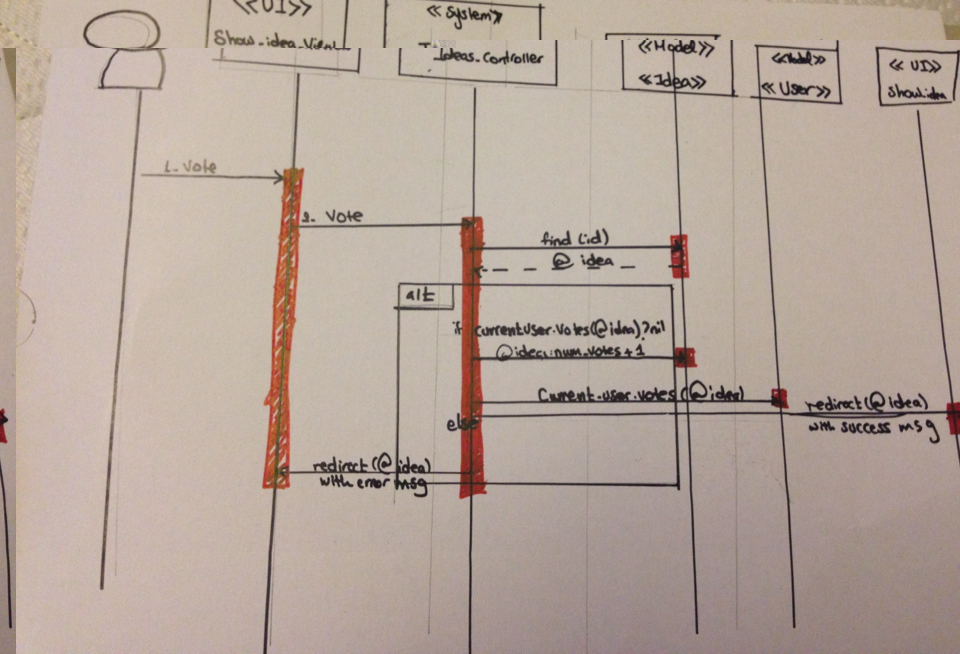 <<UI>>
Show_idea_View
<< System>>
Ideas_Controller
<<Model>>
<<Idea>>
<<Model>>
<<User>>
<< UI>>
Show.idea
1_ Vote
2_ Vote
find (id)
@ idea
alt
if currentuser.votes(@idea)?nil
@idea.num_votes + 1
Current.user.votes (@idea)
redirect(@idea)
with success msg
else
redirect (@ idea)
with error msg